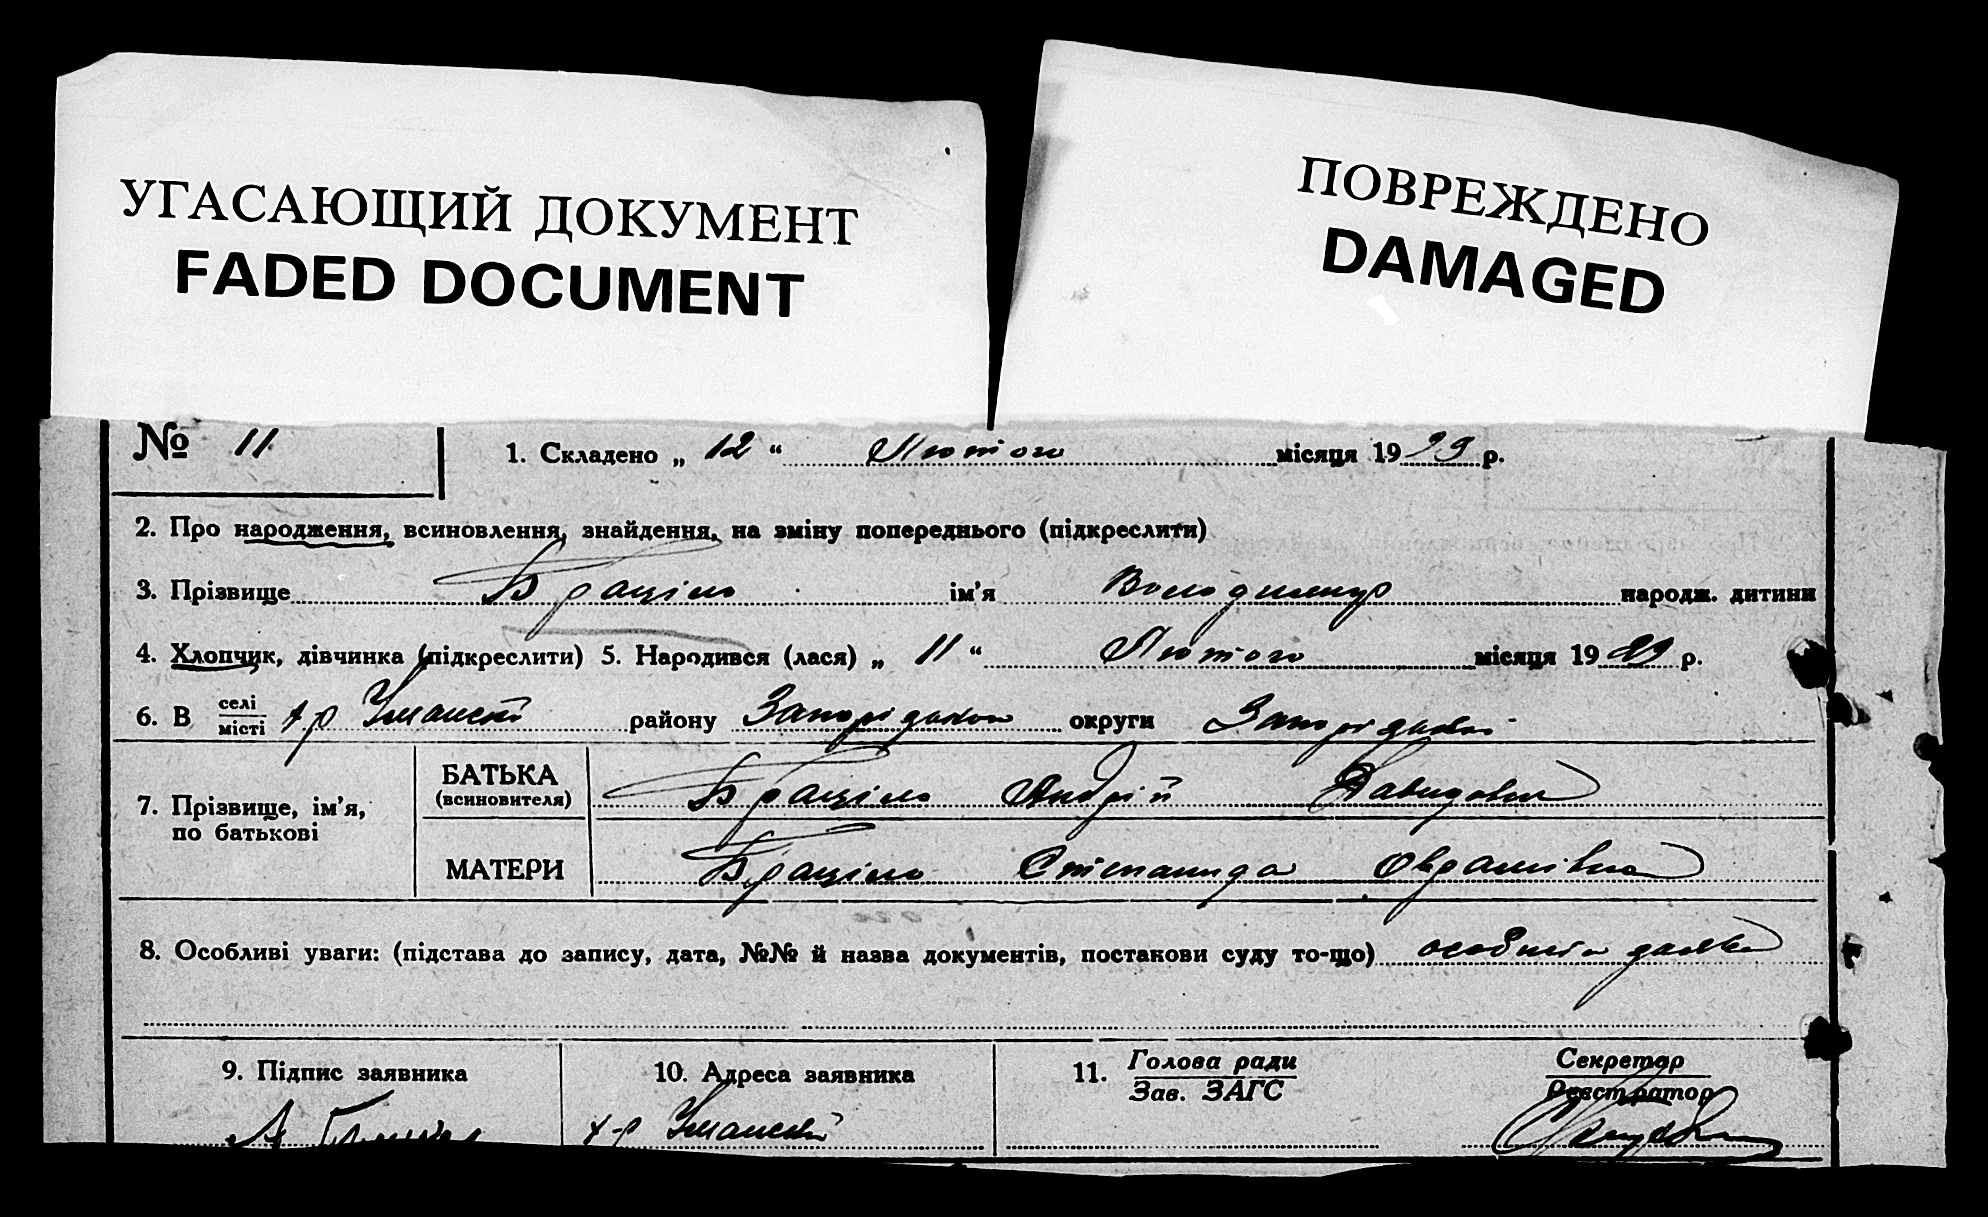 УГАСАЮЩИЙ ДОКУМЕНТ
FADED DOCUMENT
ПОВРЕЖДЕНО
DAMAGED
№ 11
1. Складено „ 12 “ Лютого місяця 1929 р.
2. Про народження, всиновлення, знайдення, на зміну попереднього (підкреслити)
3. Прізвище Браціло ім'я Володимир народж. дитини
4. Хлопчик, дівчинка (підкреслити) 5. Народився (лася) „ 11 “ Лютого місяця 1929 р.
6. В селі місті х-р Уманський району Запорізького округи Запорізької
7. Прізвище, ім'я, по батькові
БАТЬКА (всиновителя) Браціло Андрій Давидович
МАТЕРИ Браціло Степанида
8. Особливі уваги: (підстава до запису, дата, №№ й назва документів, постакови суду то-що) особиста заява
9. Підпис заявника
10. Адреса заявника
11. Голова ради Зав. ЗАГС
Секретар Реєстратор
х-р Уманський